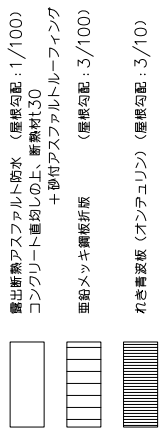 露出断熱アスファルト防水 （屋根勾配：1/100）
コンクリート直均しの上、断熱材t30
＋砂付アスファルトルーフィング
亜鉛メッキ鋼板折版 （屋根勾配：3/100）
れき青波板（オンデュリン）（屋根勾配：3/10）